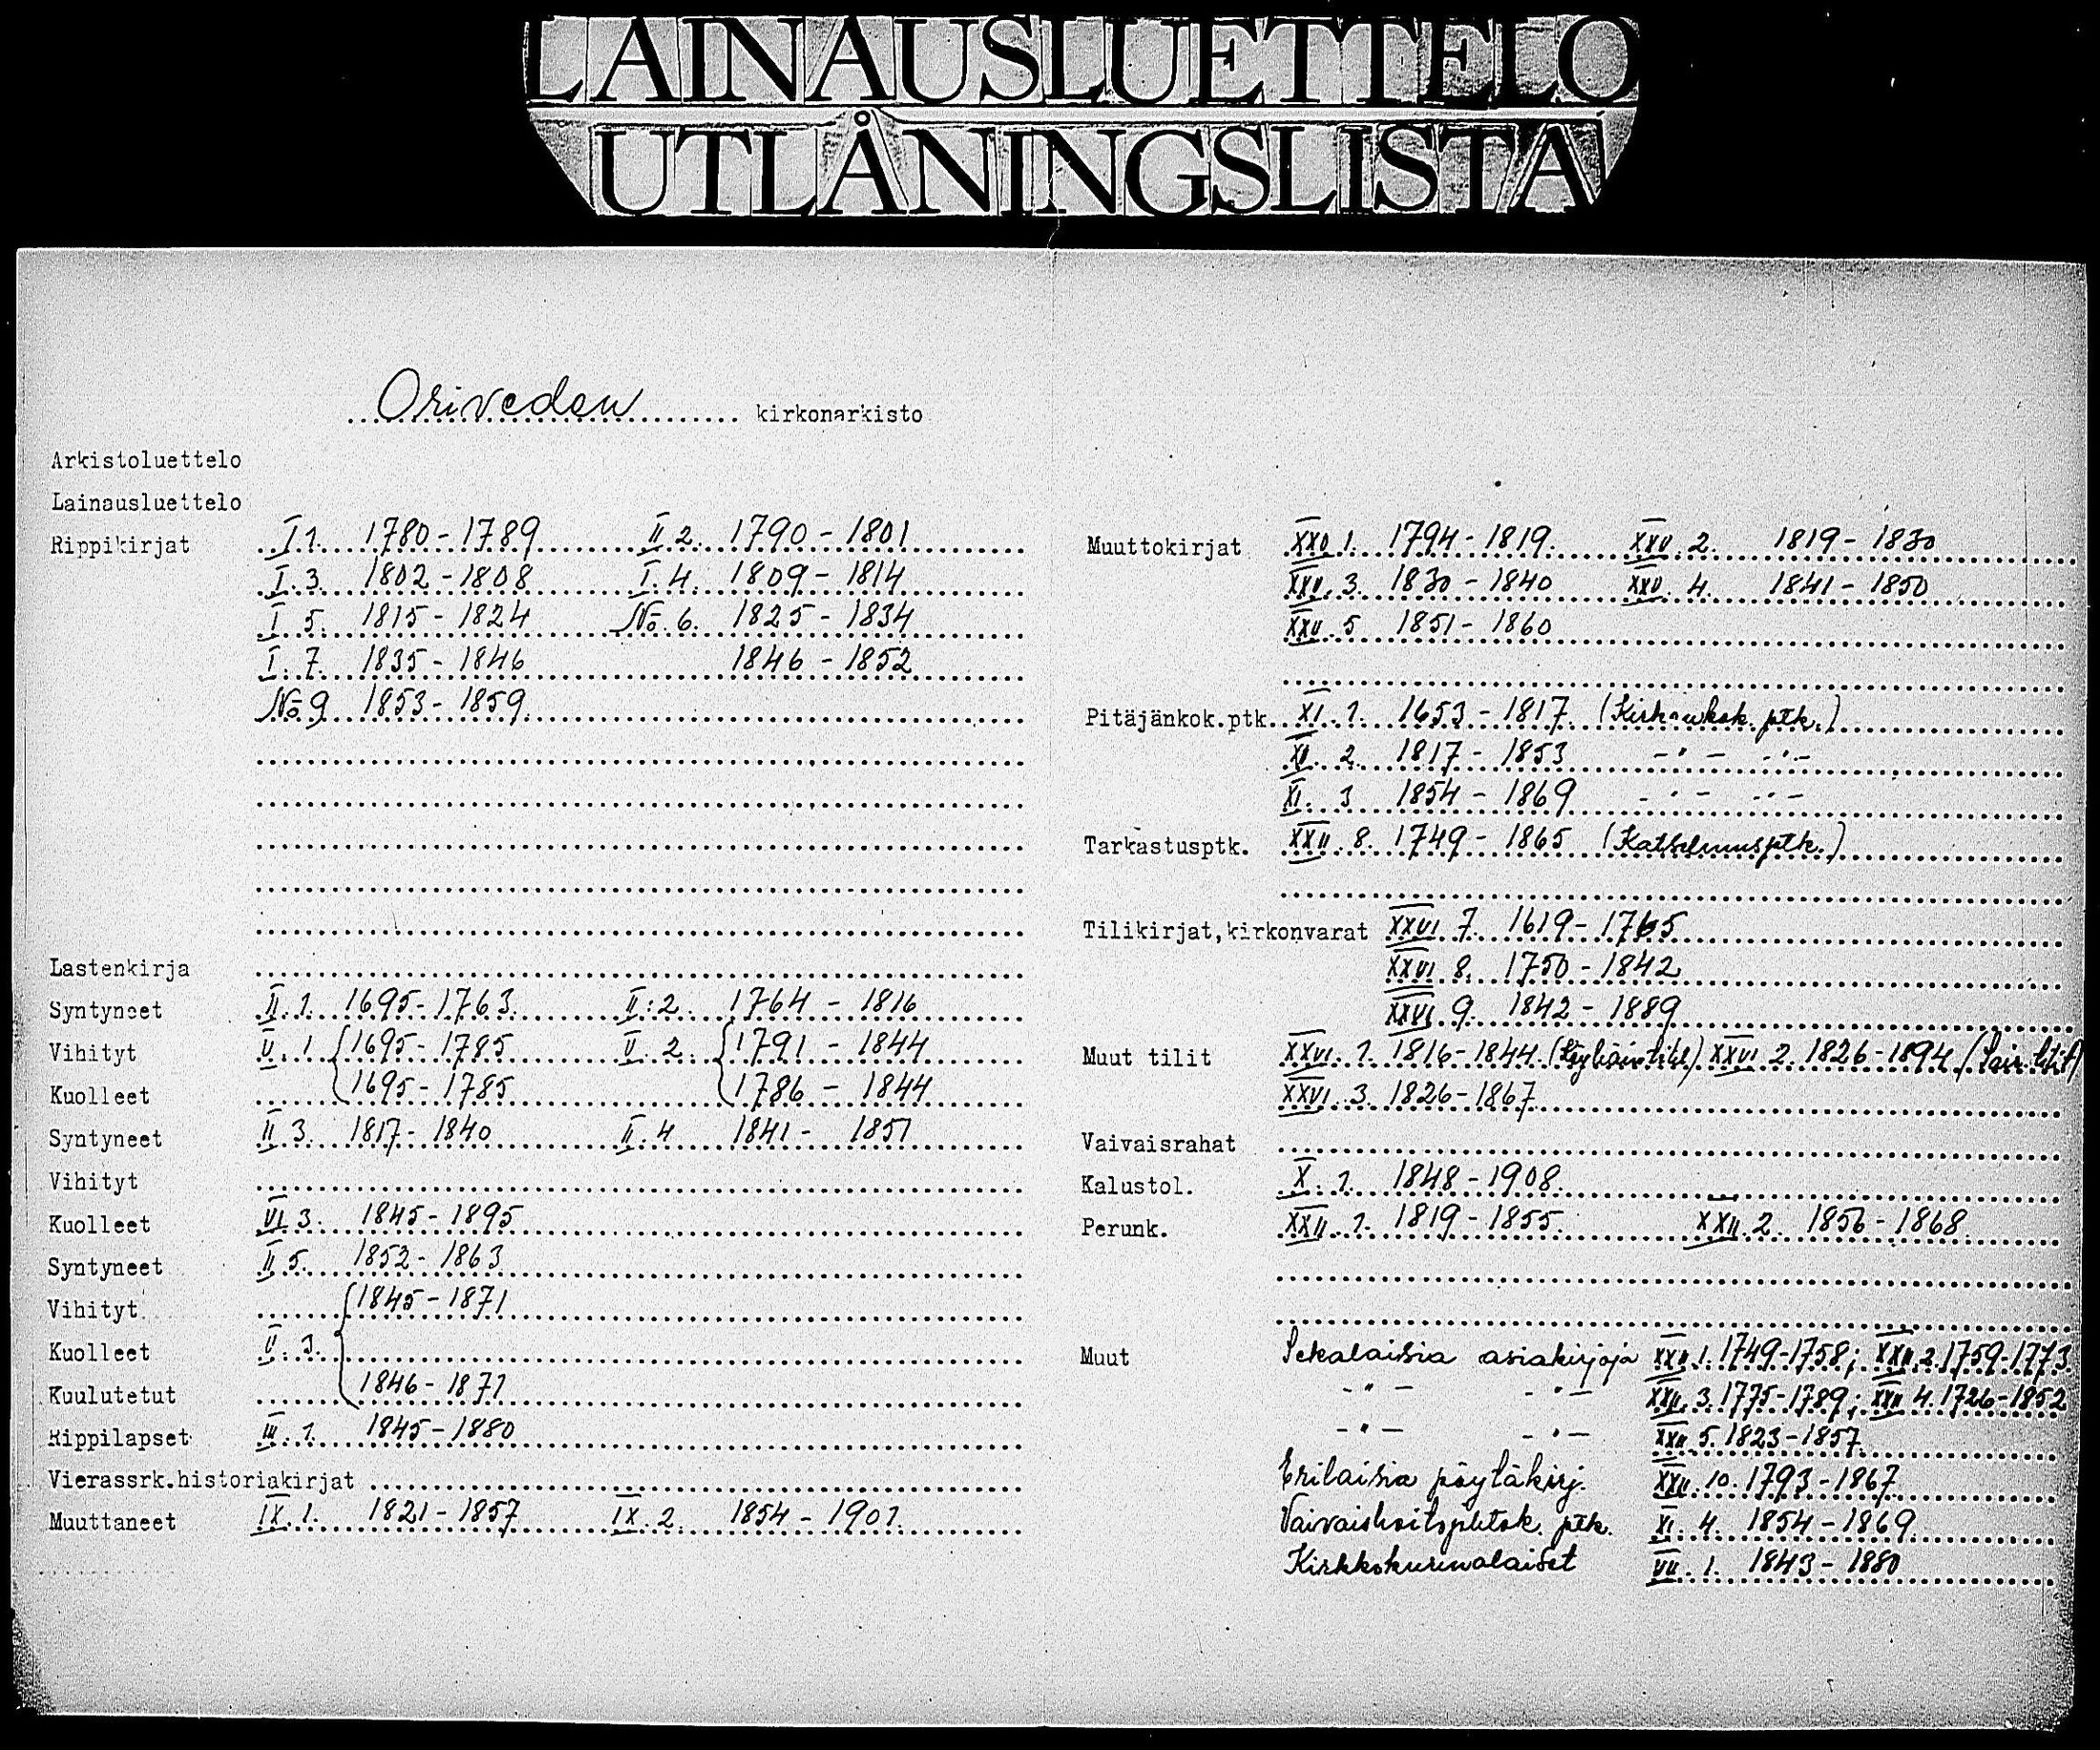 LAINAUSLUETTELO
UTLÅNINGSLISTA
Oriveden kirkonarkisto
Arkistoluettelo
Lainausluettelo
Rippikirjat I 1. 1780-1789 II 2. 1790-1801
I. 3. 1802-1808 I. 4. 1809-1814
I 5. 1815-1824 No. 6. 1825-1834
I. 7. 1835-1846 1846-1852
No 9 1853-1859
Lastenkirja
Syntyneet II. 1. 1695-1763 II. 2. 1764-1816
Vihityt V. 1 1695-1785 V. 2. 1791-1844
Kuolleet 1695-1785 1786-1844
Syntyneet II 3. 1817-1840 II. 4 1841-1851
Vihityt
Kuolleet VI 3. 1845-1895
Syntyneet II 5. 1852-1863
Vihityt 1845-1871
Kuolleet V. 3.
Kuulutetut 1846-1871
Rippilapset III. 1. 1845-1880
Vierassrk.historiakirjat
Muuttaneet IX. 1. 1821-1857 IX. 2. 1854-1901
Muuttokirjat XXV 1. 1794-1819 XXV. 2. 1819-1830
XXV. 3. 1830-1840 XXV. 4. 1841-1850
XXV. 5 1851-1860
Pitäjänkok.ptk. XI. 1. 1653-1817 (Kirkonkok. ptk.)
XI. 2. 1817-1853 -"- -"-
XI. 3 1854-1869 -"- -"-
Tarkastusptk. XXII. 8. 1749-1865 (Katselmusptk.)
Tilikirjat,kirkonvarat XXVI 7. 1619-1765
XXVI. 8. 1750-1842
XXVI. 9. 1842-1889
Muut tilit XXVI. 1. 1816-1844 XXVI 2. 1826-1894
XXVI. 3. 1826-1867
Vaivaisrahat
Kalustol. X. 1. 1848-1908
Perunk. XXII. 1. 1819-1855 XXII. 2. 1856-1868
Muut Sekalaisia asiakirjoja XXII 1. 1749-1758; XXII. 2. 1759-1773
-"- -"- XXII. 3. 1775-1789; XXII 4. 1726-1852
-"- -"- XXII 5. 1823-1857
Erilaisia pöytäkirj. XXII. 10. 1793-1867
Vaivaishoito ptk. XI. 4. 1854-1869
Kirkkokurinalaiset VII. 1. 1843-1880